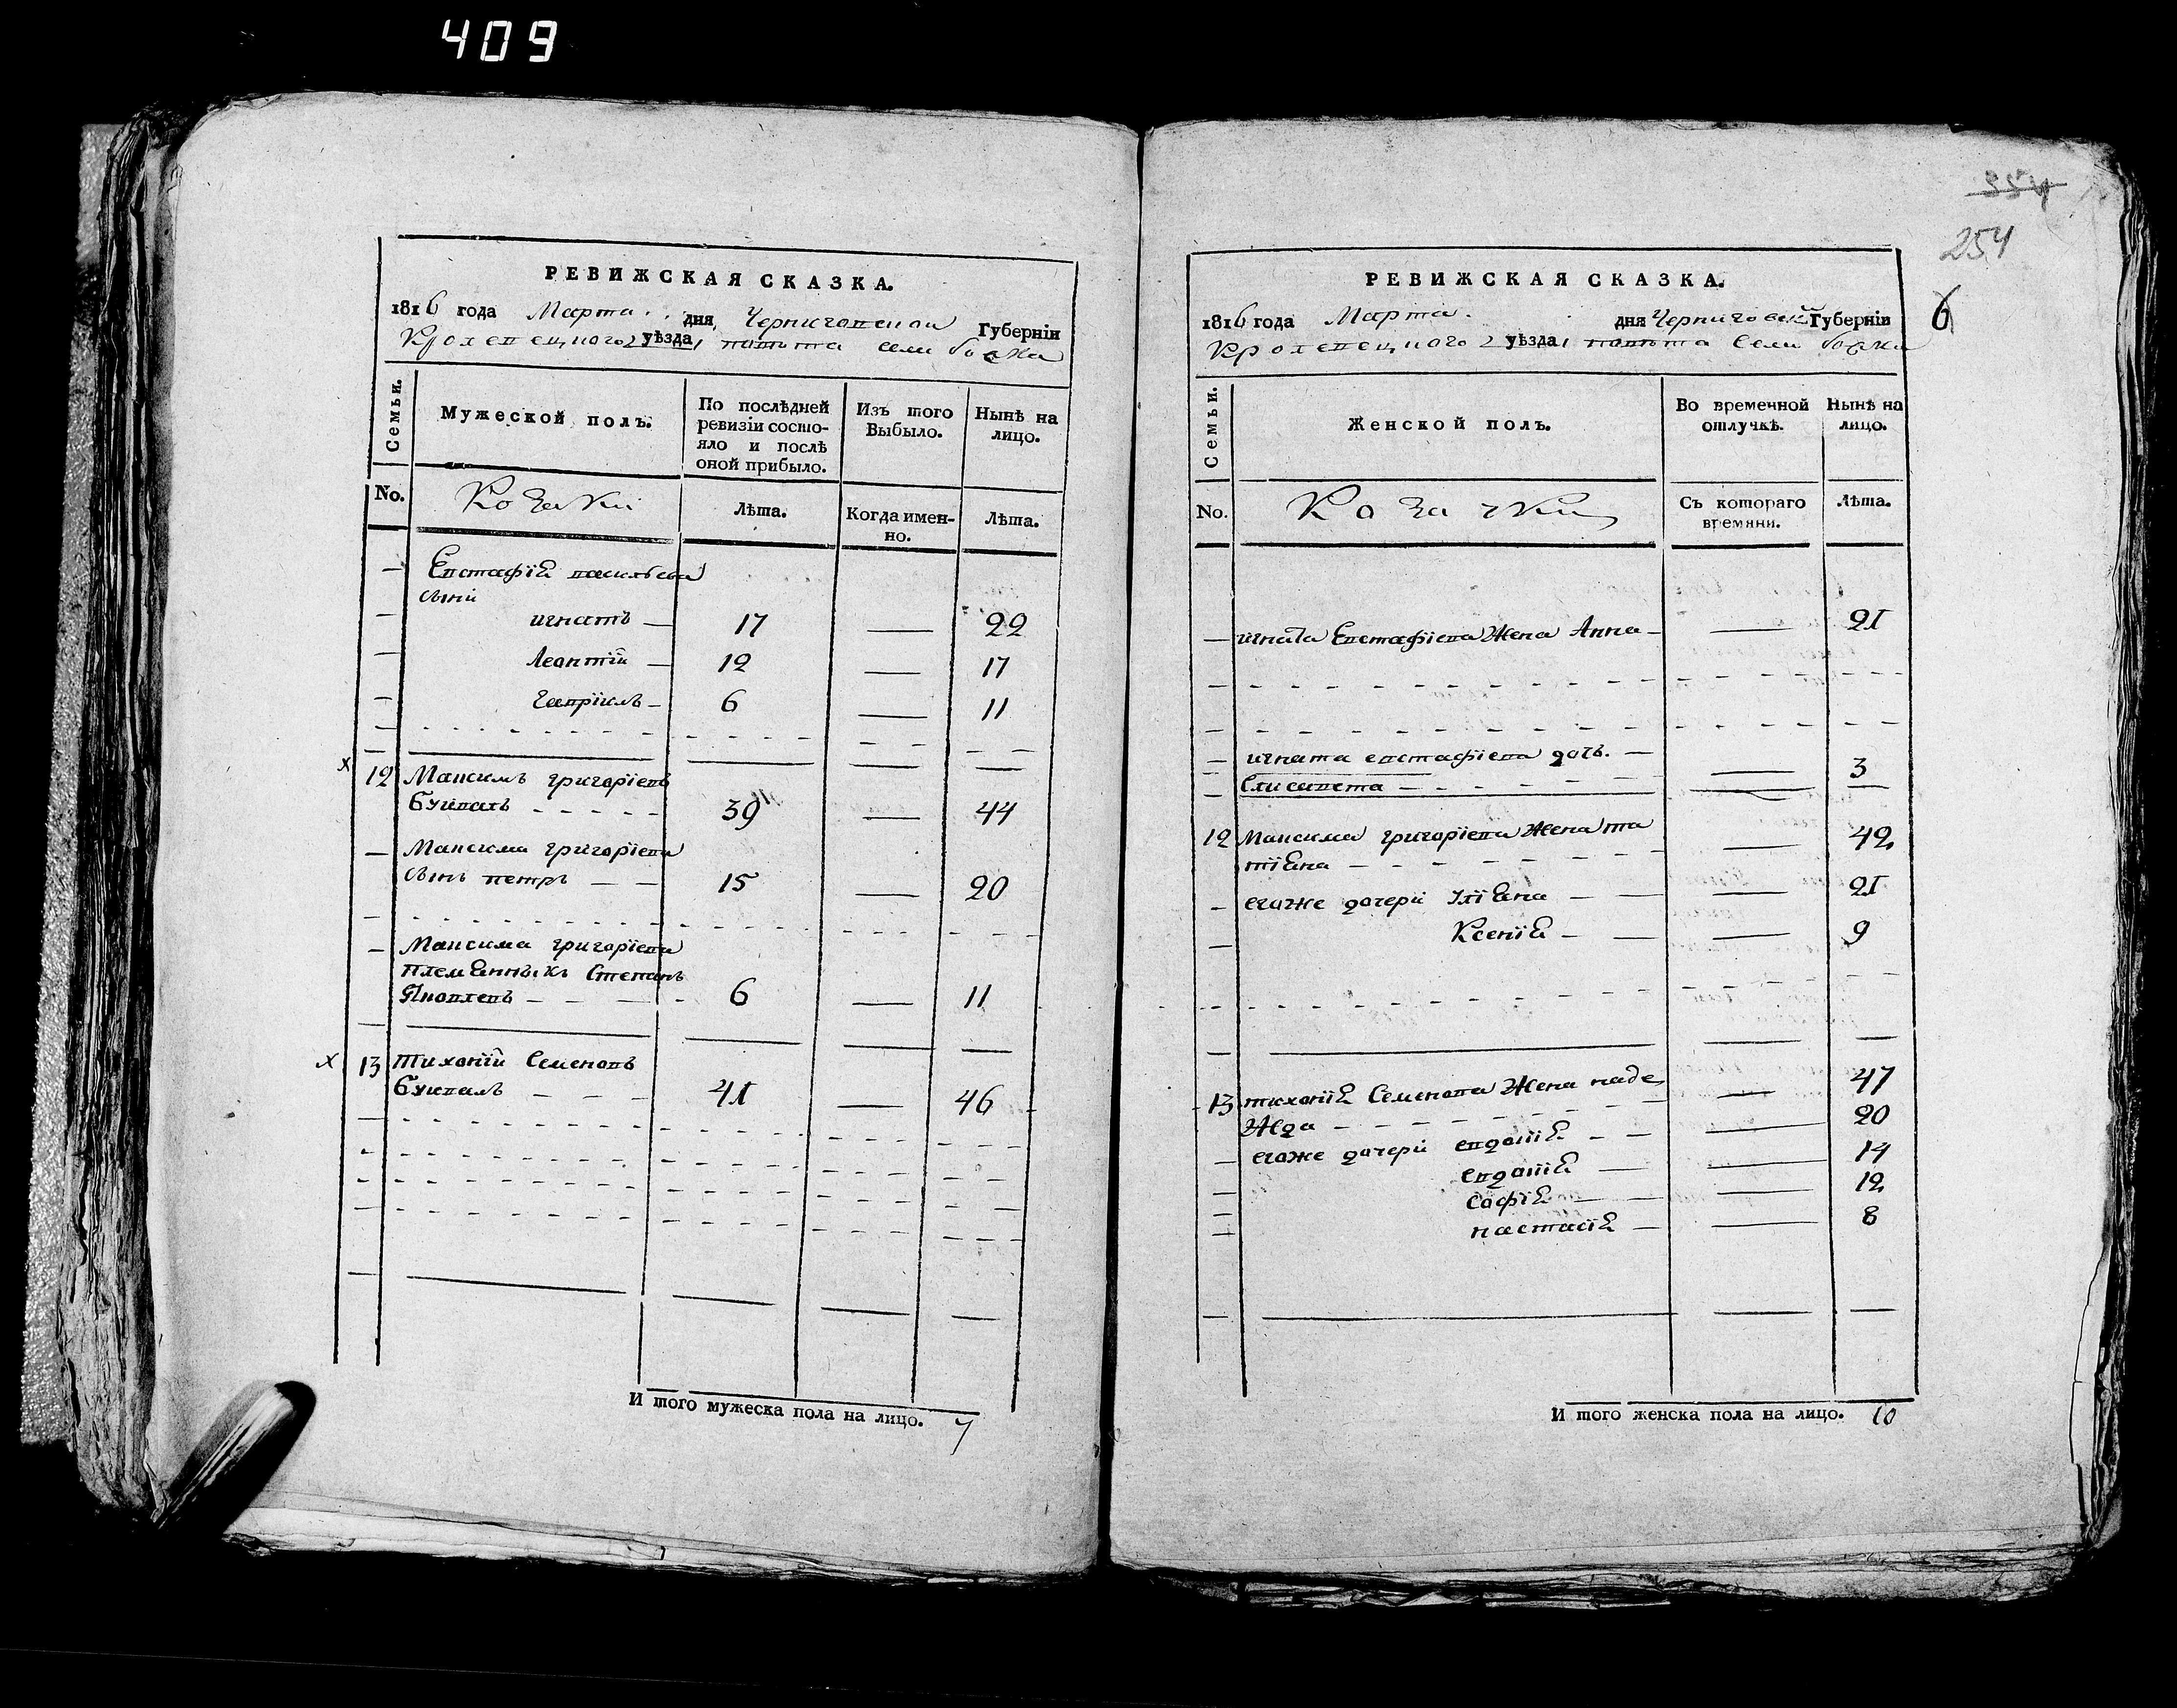 409
РЕВИЖСКАЯ СКАЗКА.
1816 года Марта . . дня Черниговской Губерніи
Кролевецкого уѣзда
Семьи.
Мужеской полъ.
По послѣдней ревизіи состо-
яло и послѣ
оной прибыло.
Изъ того
Выбыло.
Нынѣ на
лицо.
No.
Козаки
Лѣта.
Когда имен-
но.
Лѣта.
— Евстафія васильева
сыни
— игнатъ — 17 — 22
— Леонтій — 12 — 17
— Гавріилъ — 6 — 11
х 12 Максимъ григоріевъ
39 — 44
— Максима григоріева
сынъ петръ — — 15 — 20
— Максима григоріева
племянныкъ Степанъ
Яковлевъ — — — 6 — 11
х 13 тихоній Семеновъ
41 — 46
И того мужеска пола на лицо. 7
354
254
6
РЕВИЖСКАЯ СКАЗКА.
1816 года Марта. дня Черниговской Губерніи
Кролевецкого уѣзда
Семьи.
Женской полъ.
Во времечной
отлучкѣ.
Нынѣ на
лицо.
No.
Козачки
Съ котораго
времяни.
Лѣта.
— игната Евстафіева Жена Анна — — 21
— игната евстафіева дочь. —
— Елисавета — — — 3
12 Максима григоріева Жена та
тіяна — — 42
— егоже дочери Уліяна — — 21
— Ксенія — — 9
13 тихонія Семенова Жена наде
Жда — — 47
— егоже дочери евдокія — — 20
— евдокія — — 14
— софія — — 12
— настасія — — 8
И того женска пола на лицо. 10